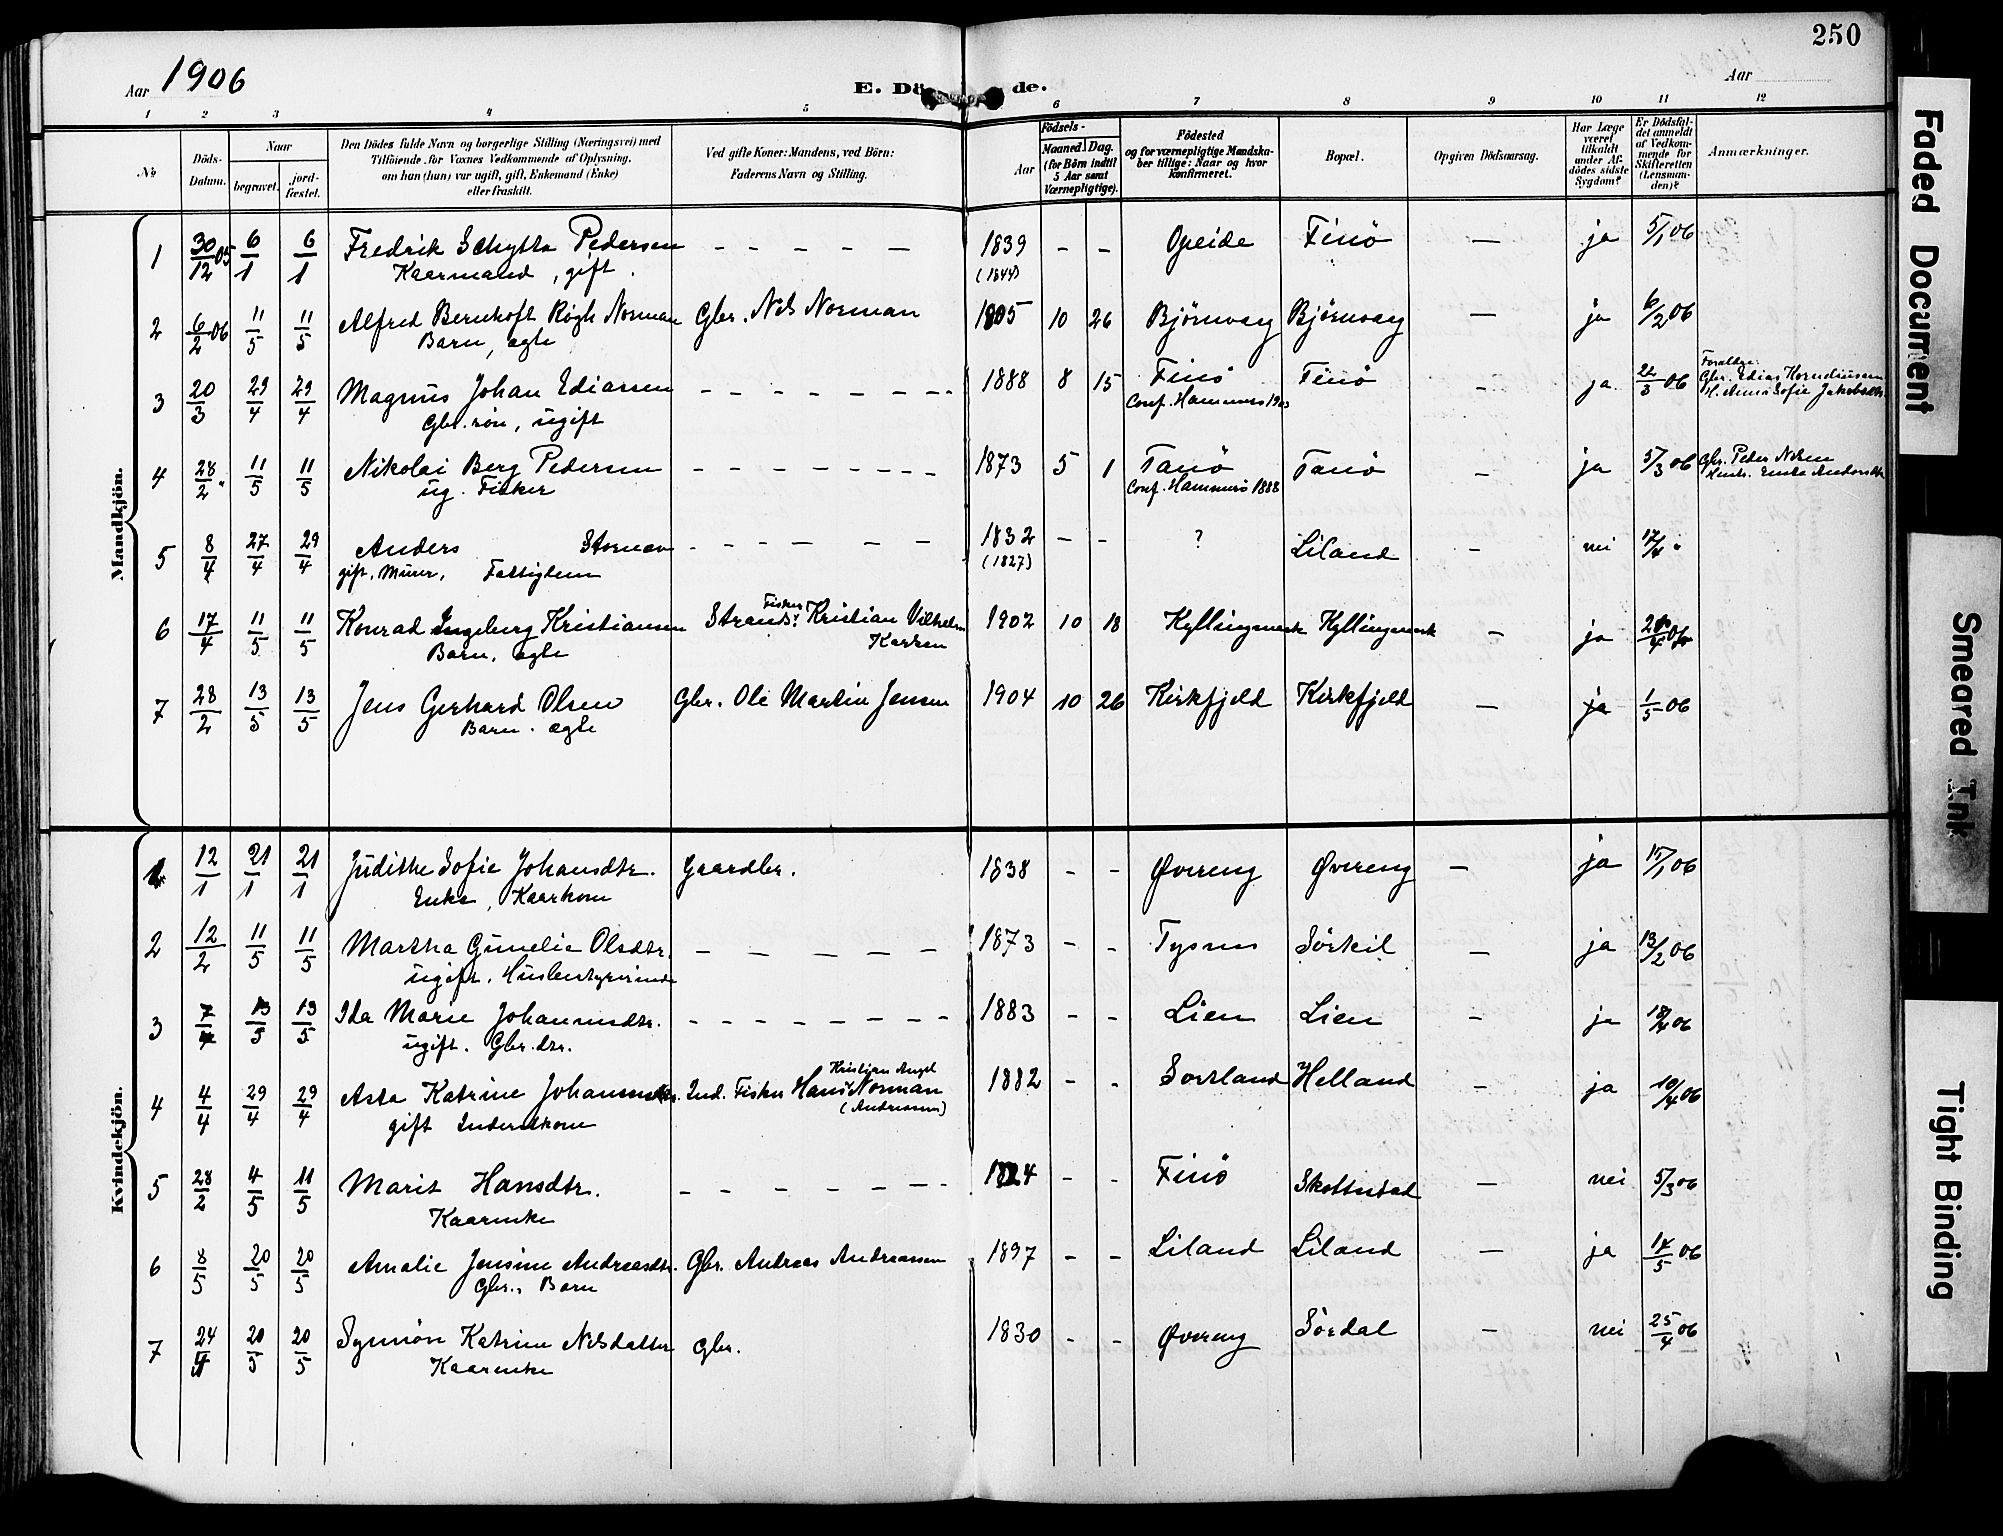 250
Aar 1906
E. Dö de.
Aar
1 2 3 4 5 6 7 8 9 10 11 12
No
Döds-Datum.
Naar
begravet.
jordfæstet.
Den Dödes fulde Navn og borgerlige Stilling (Næringsvei) med
Tilföiende for Voxnes Vedkommende af Oplysning,
om han (hun) var ugift, gift, Enkemand (Enke)
eller fraskilt.
Ved gifte Koner: Mandens, ved Börn:
Faderens Navn og Stilling.
Födsels-
Aar
Maaned. Dag.
(for Börn indtil
5 Aar samt
Værnepligtige).
Födested
og for værnepligtige Mandskaber tillige: Naar og hvor
konfirmeret.
Bopæl.
Opgiven Dödsaarsag.
Har Læge
været
tilkaldt
under Afdödes sidste
Sygdom?
Er Dödsfaldet anmeldt
af Vedkommende for
Skifteretten
(Lensmanden)?
Anmærkninger.
Mandkjön.
1 30/12 05 6/1 6/1 Fredrik Schytte Pedersen - - - - - 1839 - - Opeide Finö - ja 5/1 06
Kaarmand, gift. (1844)
2 6/2 06 11/5 11/5 Alfred Bernhoft Norman Gbr. Nils Norman 1905 10 26 Bjørnvag Bjørnvag - ja 6/2 06
Barn, ægte
3 20/3 29/4 29/4 Magnus Johan Ediassen - - - - - - - - 1888 8 15 Finö Finö - ja 22/3 06 Forældre:
Gbr. søn, ugift Conf. Hammerö 1903 Gbr. Edias Korneliussen
H. Anna Sofie Jakobsdtr.
4 28/2 " 11/5 11/5 Nikolai Berg Pedersen - - - - - - - - 1873 5 1 Tanö Tanö - ja 5/3 06 Gbr. Peder Nilsen
ug. Fisker Conf. Hammerö 1888
5 8/4 27/4 29/4 Anders Stornæv - - - - - - 1832 - - ? Liland - nei 17/4 "
gift, Murer, Fattiglem (1827)
6 17/4 11/5 11/5 Konrad Ingeberg Kristiansen Strands. Fisker Kristian Vilhelm 1902 10 18 Kyllingmark Kyllingmark - ja
Barn, ægte Karlsen
7 28/2 13/5 13/5 Jens Gerhard Olsen Gbr. Ole Martin Jensen 1904 10 26 Kirkfjeld Kirkfjeld - ja 1/5 06
Barn. ægte
Kvindekjön.
1 12/1 21/1 21/1 Judithe Sofie Johansdtr. Gaardbr. 1838 - - Øvereng Øvereng - ja 15/1 06
Enke, Kaarkone
2 12/2 11/5 11/5 Martha Gunelie Olsdtr. - - - - - 1873 - - Tysnes Sörkil - ja 13/2 06
ugift, Husbestyrerinde
3 7/4 13/5 13/5 Ida Marie Johannesdtr. - - - - - - - - 1883 - - Lien Lien - ja 18/4 06
ugift. Gbr. dtr.
4 4/4 29/4 29/4 Asta Katrine Johannesdtr. Ind. Fisker Hans Kristian Angel Norman 1882 - - Sortland Helland - ja 10/4 06
gift Inderstkone (Andreassen)
5 28/2 4/5 11/5 Marit Hansdtr. - - - - - - - 1824 - - Finö Skottestad - nei 5/3 06
Kaarenke
6 8/5 20/5 20/5 Amalie Jensine Andreasdtr. Gbr. Andreas Andreassen 1897 - - Liland Liland - ja 14/5 06
Gbr., Barn
7 24/4 20/5 20/5 Synnöv Katrine Nilsdatter Gbr. 1830 - - Øvereng Sördal - nei 25/4 06
Kaarenke
Faded Document
Smeared Ink
Tight Binding